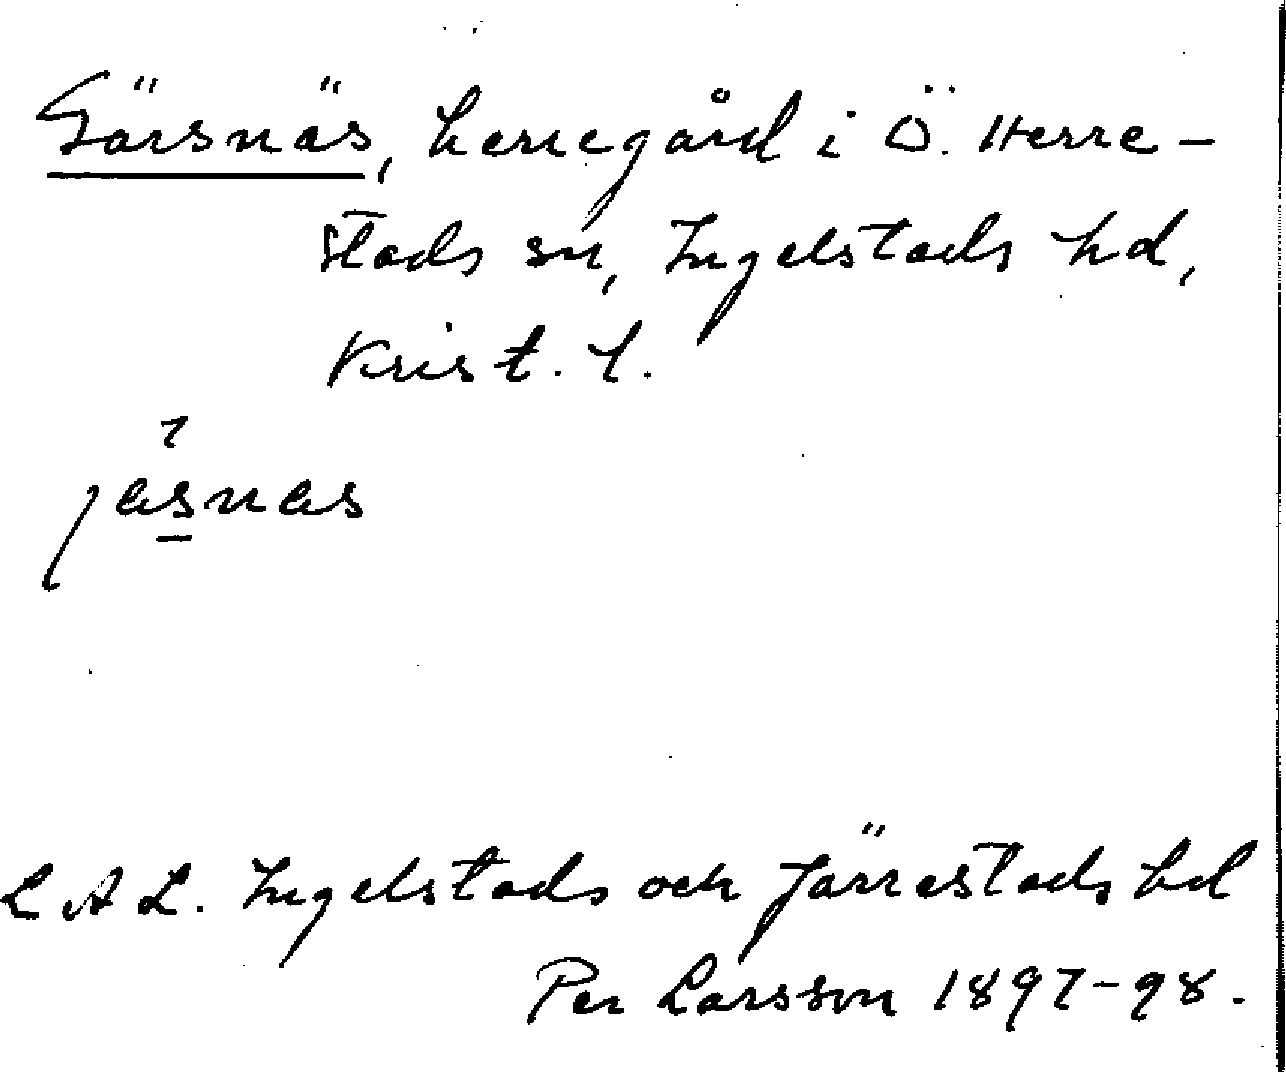 Gärsnäs, herregård i Ö. Herre-
stads sn, Ingelstads hd,
Krist. l.
jæsnæs
L A L. Ingelstads och Järrestads hd
Per Larsson 1897-98.